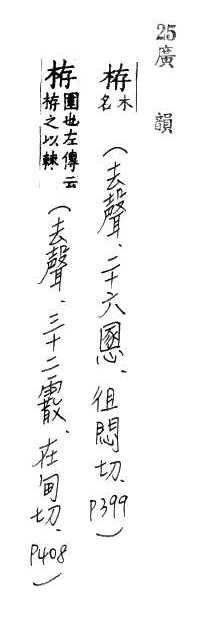 25 廣韻
栫 木名（去聲、二十六慁、徂悶切、P399）
栫 圍也左傳云栫之以棘（去聲、三十二霰、在甸切、P408）